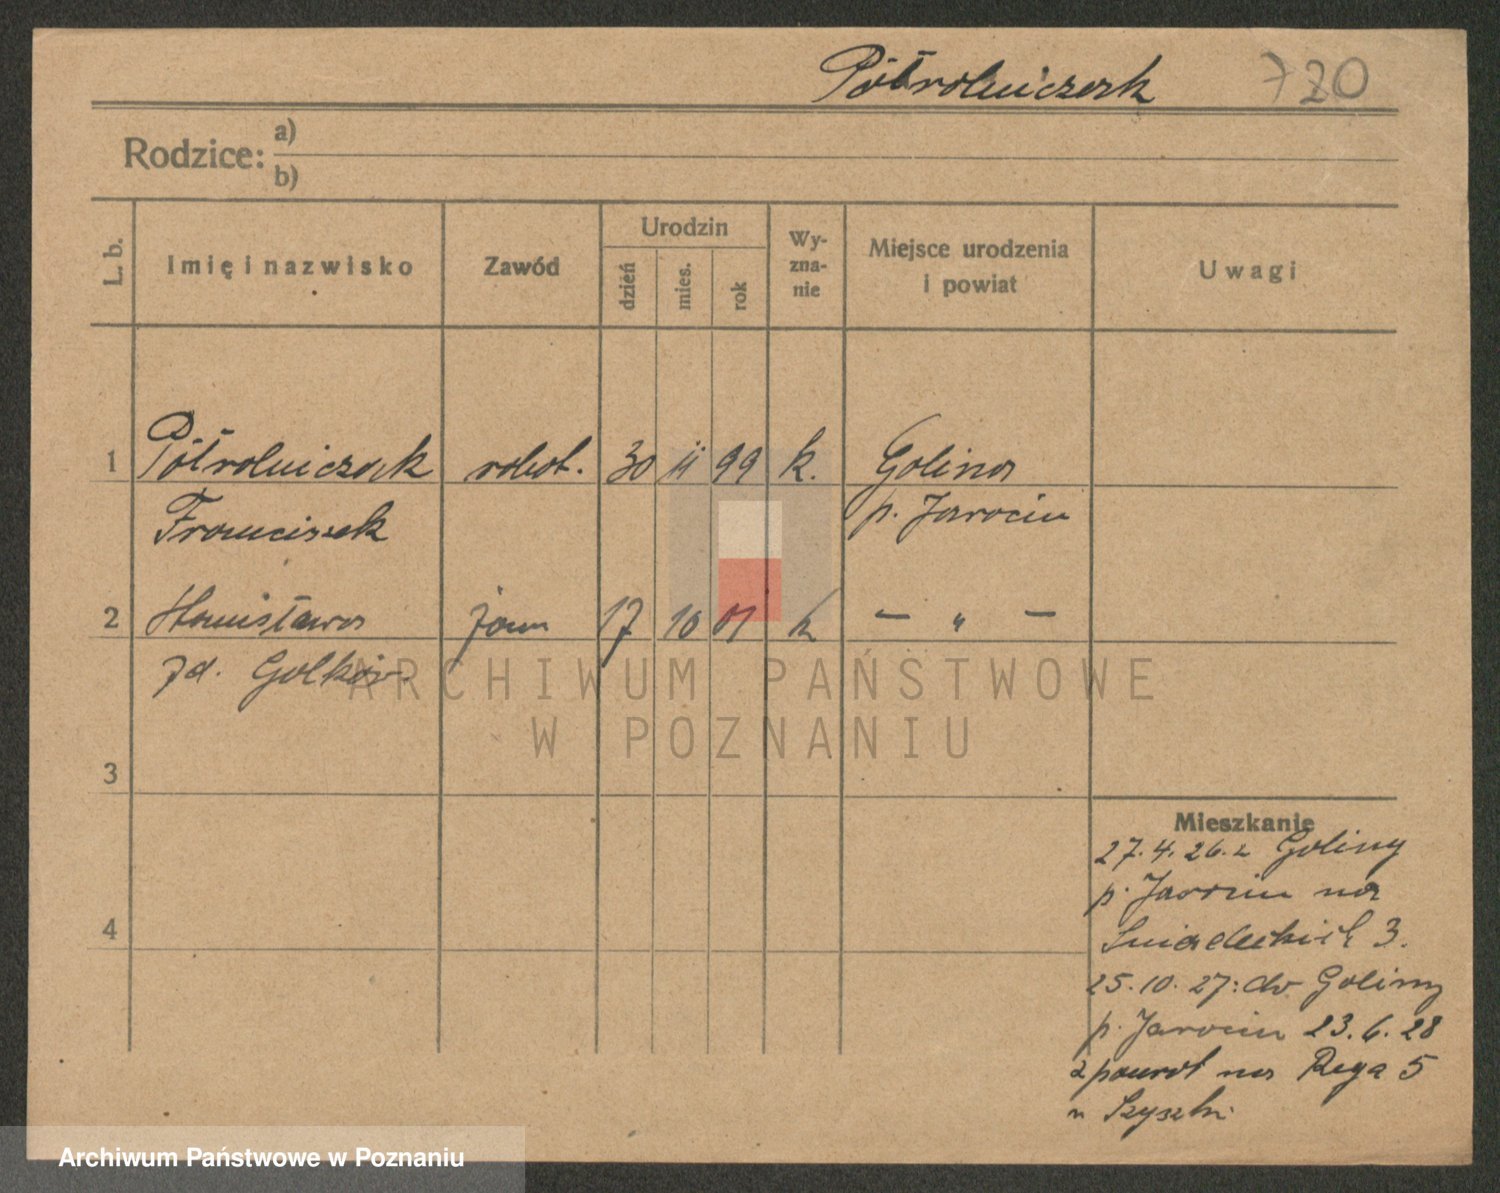 Półrolniczak 720
Rodzice: a)
b)
L. b.
Imię i nazwisko
Zawód
Urodzin
dzień
mies.
rok
Wy-
zna-
nie
Miejsce urodzenia
i powiat
Uwagi
1 Półrolniczak robot. 30 11 99 k. Golina
Franciszek p. Jarocin
2 Stanisława żona 17 10 01 k — " —
zd. Golków
ARCHIWUM PAŃSTWOWE
W POZNANIU
3
4
Mieszkanie
27.4.26. z Goliny
p. Jarocin na
Śniadeckich 3.
25.10.27: do Goliny
p. Jarocin 23.6.28
z powrot na Reya 5
Archiwum Państwowe w Poznaniu